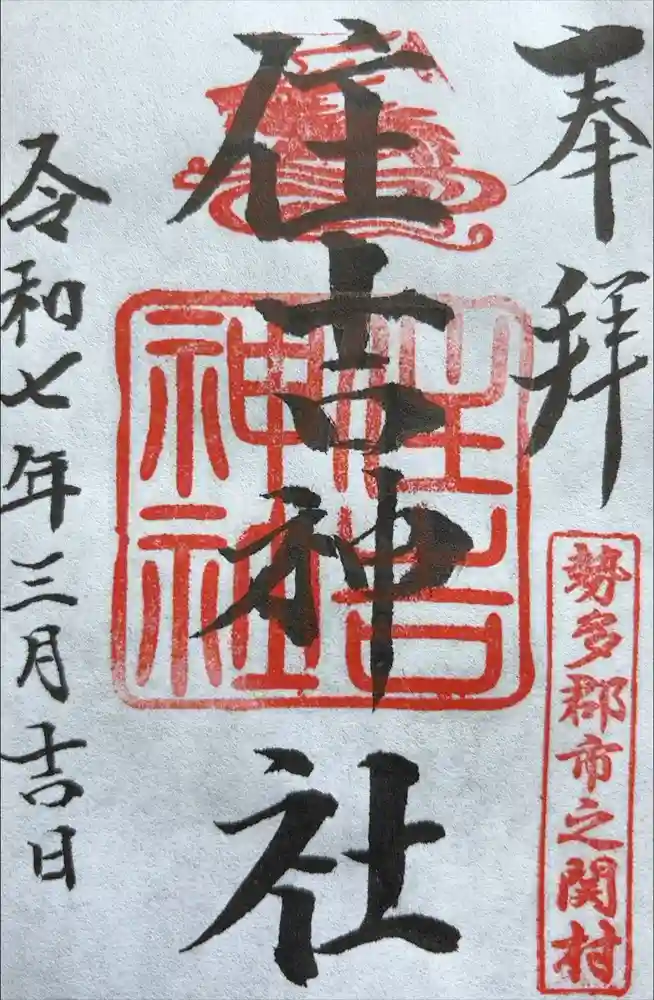 奉拝
勢多郡市之関村
住吉神社
住吉神社
令和七年三月吉日